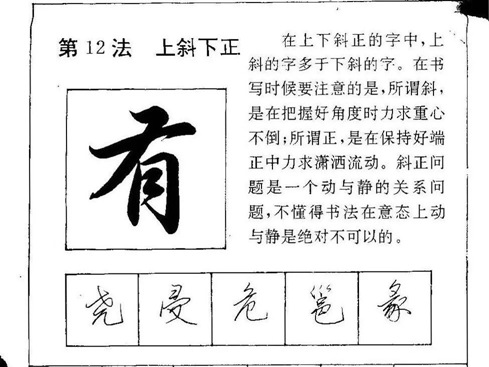 第12法 上斜下正
在上下斜正的字中，上
斜的字多于下斜的字。在书
写时候要注意的是，所谓斜，
是在把握好角度时力求重心
不倒；所谓正，是在保持好端
正中力求潇洒流动。斜正问
题是一个动与静的关系问
题，不懂得书法在意态上动
与静是绝对不可以的。
有
尧 浸 危 邕 彖